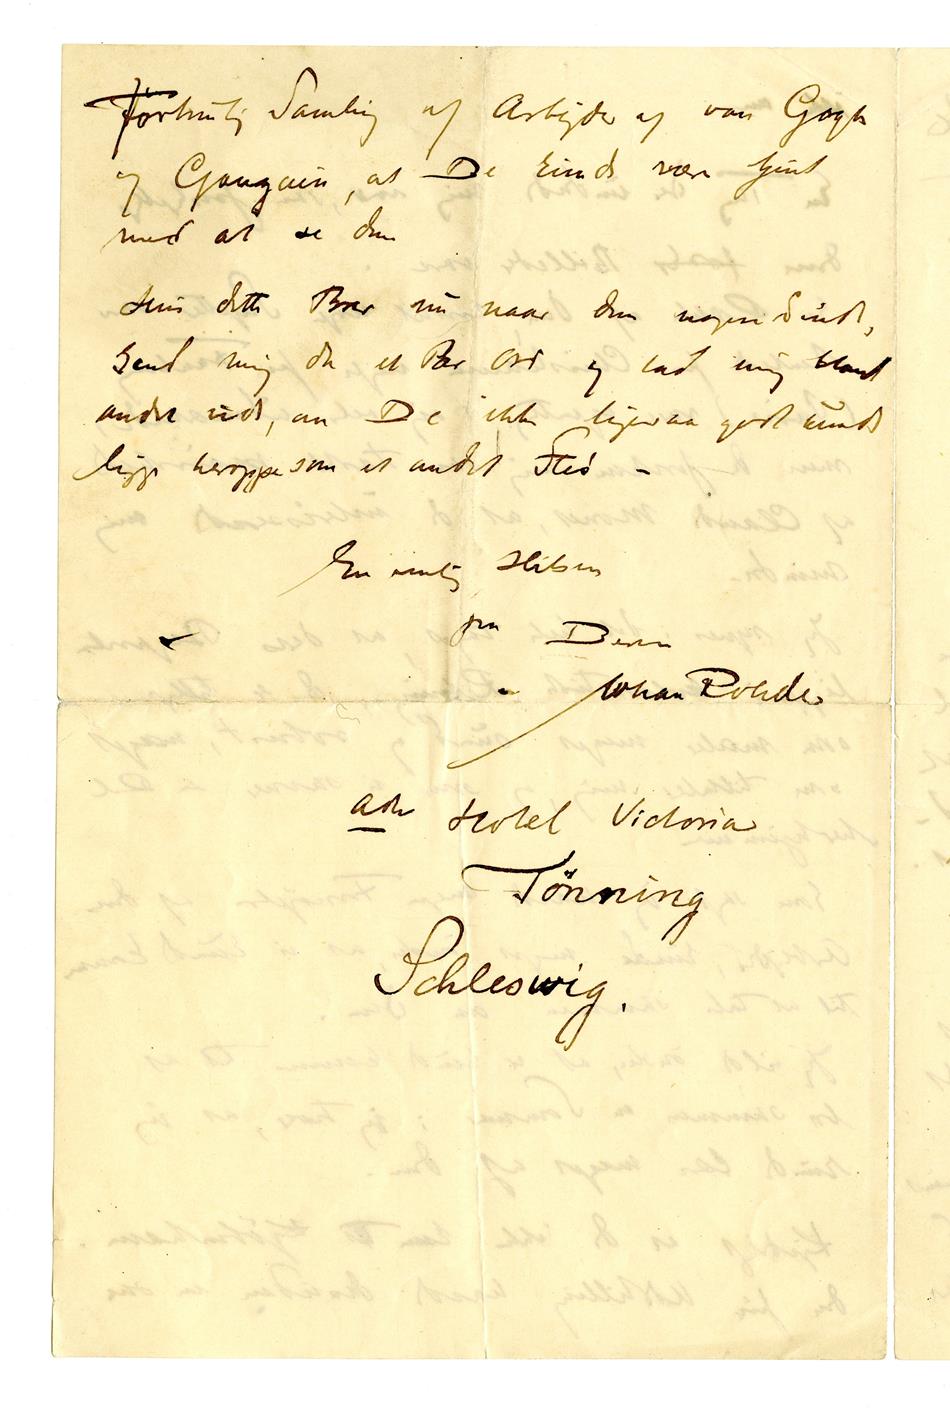 Fortrinlig Samling af Arbejder af van Gogh
og Gauguin, at De kunde være tjent
med at se dem
Hvis dette Brev nu naar dem nogen Sinde,
send mig da et Par Ord og lad mig blandt
andet vide, om De ikke ligesaa godt kunde
ligge heroppe som et andet Sted –
En venlig Hilsen
fra Deres
Johan Rohde
adr Hotel Victoria
Tönning
Schleswig.